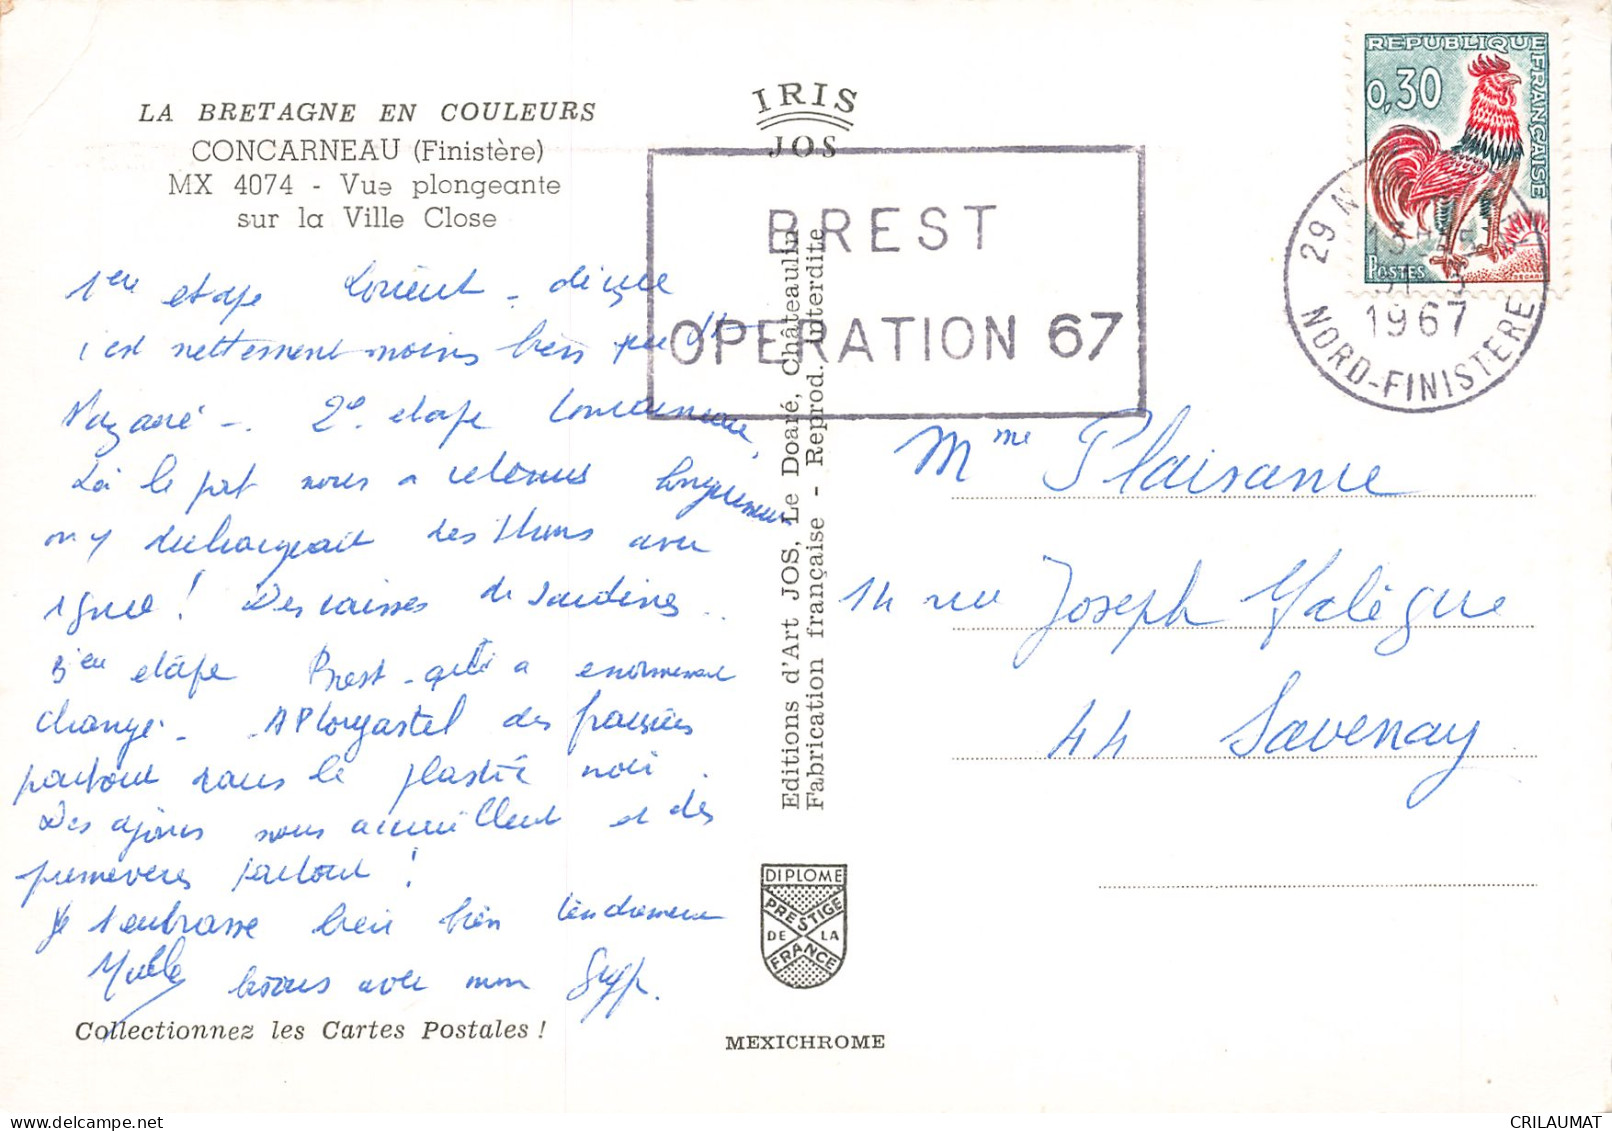 LA BRETAGNE EN COULEURS
CONCARNEAU (Finistère)
MX 4074 - Vue plongeante
sur la Ville Close
1ère etape Lorient - 
c'est nettement moins bien 
Nazaré -. 2e. etape Concarneau,
Là le port nous a retenus longuement
on y dechargeait des thons avec
grue ! Des caisses de sardines..
3ieu etape Brest - qui a enormement
changé - A Plougastel des fraisiers
partout sous le plastic noir.
Des ajoncs nous accueillent et des
primeveres partout !
Je t'embrasse bien bien tendrement
avec mon
Collectionnez les Cartes Postales !
IRIS
JOS
BREST
OPERATION 67
Editions d'Art JOS, Le Doaré, Châteaulin
Fabrication française - Reprod. interdite
DIPLOME
PRESTIGE
DE LA
FRANCE
MEXICHROME
REPUBLIQUE FRANÇAISE
0,30
POSTES
29 N
1967
NORD-FINISTERE
Mme Plaisance
14 rue Joseph Malègue
44 Savenay
CRILAUMAT